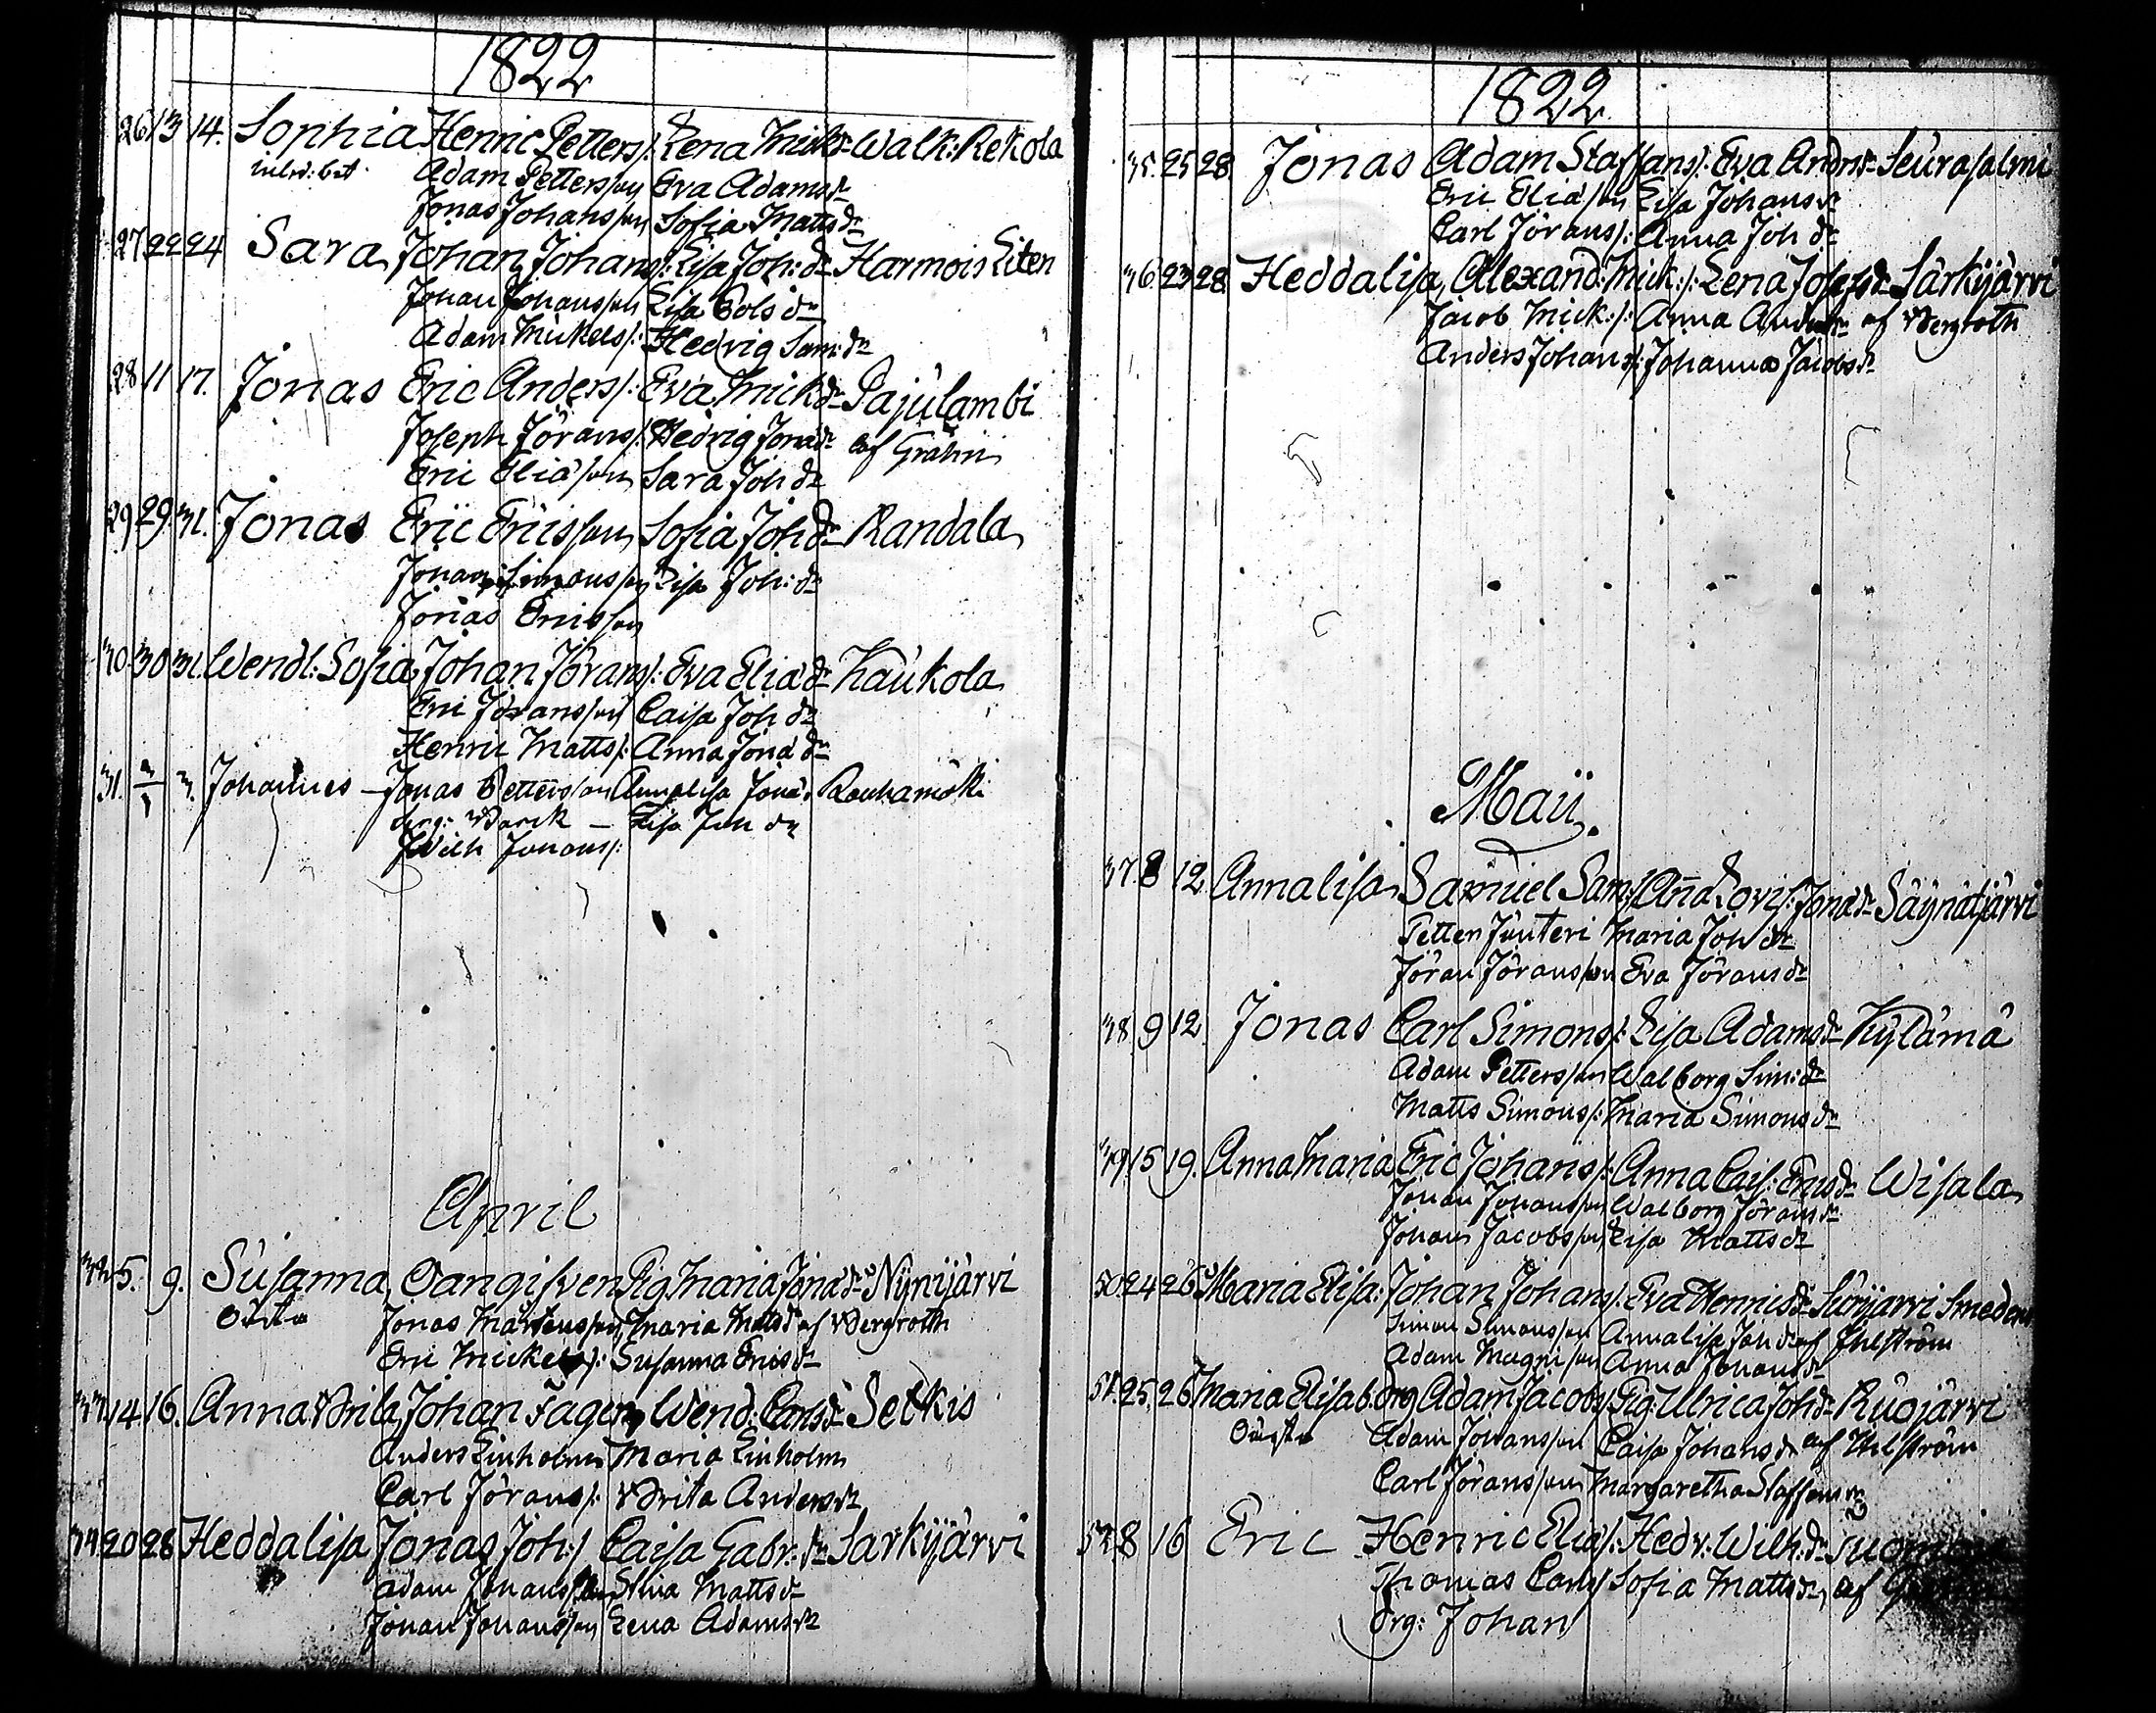 1822
26 13 14. Sophia Henric Petters/: Lena Mickdr Walk: Rekola
Adam Petersson Eva Adamsdr
Jonas Johansson Sofia Mattsdr
27 22 24 Sara Johan Johans/: Lisa Joh: dr Harmois Liten
Johan Johansson Lisa Pols dr
Adam Mickels/: Hedvig Sam: dr
28 11 17. Jonas Eric Anders/: Eva Mickdr Pajulambi
Joseph Jörans/: Hedvig Jonädr af Grahn
Eric Eliä son Sara Joh dr
29 29. 31. Jonas Eric Ericsson Sofia Joh dr Randala
Johan Simonsson Lisa Joh: dr
Jonas Ericsson
30 30 31. Wendl: Sofia Johan Jörans/: Eva Eliädr Kaukola
Eric Jöransson Caisa Joh dr
Henric Matts/: Anna Jonä dr
31. 3. Johannes – Jonas Pettersson Annalisa Jonä. Rauhamäki
– Lisa Joh dr
Wilh Johans/:
April
32 5. 9. Susanna Oangifven Pig. Maria Jonädr Nynijärvi
Oäkta Jonas Mårtensson Maria Mattsdr af Bergroth
Eric Mickels/: Susanna Ericsdr
33 14 16. Anna Brita Johan Fager Wend. Carlsdr Setkis
Anders Linholm Maria Linholm
Carl Jörans/: Brita Andersdr
34 20 28 Heddalisa Jonas Joh:/ Caisa Gabr: dr Särkijärvi
Adam Johansson Stina Mattsdr
Johan Johansson Lena Adamsdr
1822
35. 25 28 Jonas Adam Staffans/: Eva Andersdr Seurasalmi
Eric Eliä son Lisa Johansdr
Carl Jörans/: Anna Joh dr
36 23 28 Heddalisa Alexand: Mick:/: Lena Josefsdr Särkijärvi
Jacob Mick:/: Anna af Bergroth
Anders Johans/: Johanna Jacobsdr
Maij.
37. 8 12 Annalisa Samuel Sam:/ Anna Lovis: Jonädr Säynätjärvi
Petter Junteri Maria Joh dr
Jöran Jöransson Eva Jöransdr
38. 9 12. Jonas Carl Simons/: Lisa Adamsdr Kylämä
Adam Pettersson Walborg Sim: dr
Matts Simons/: Maria Simonsdr
49. 15 19. Anna Maria Eric Johans/: Anna Cais: Ericsdr Wisala
Johan Johansson Walborg Jöransdr
Johan Jacobsson Lisa Mattsdr
50 24 26 Maria Elisa: Johan Johans/: Eva Henricsdr Surjärvi Smeden
Simon Simonsson Annalisa Joh dr af Ehlström
Adam Magnison Anna Johansdr
51. 25. 26 Maria Elisab: Drg Adam Jacobs/ Pig. Ulrica Johdr Ruojärvi
Oäkta Adam Johansson Caisa Johans dr af Ehlström
Carl Jöransson Margaretha Staffansdr
52 8 16 Eric Henric Eliä/: Hedv: Wilh: dr
Thomas Carls/ Sofia Mattsdr af
Drg: Johan